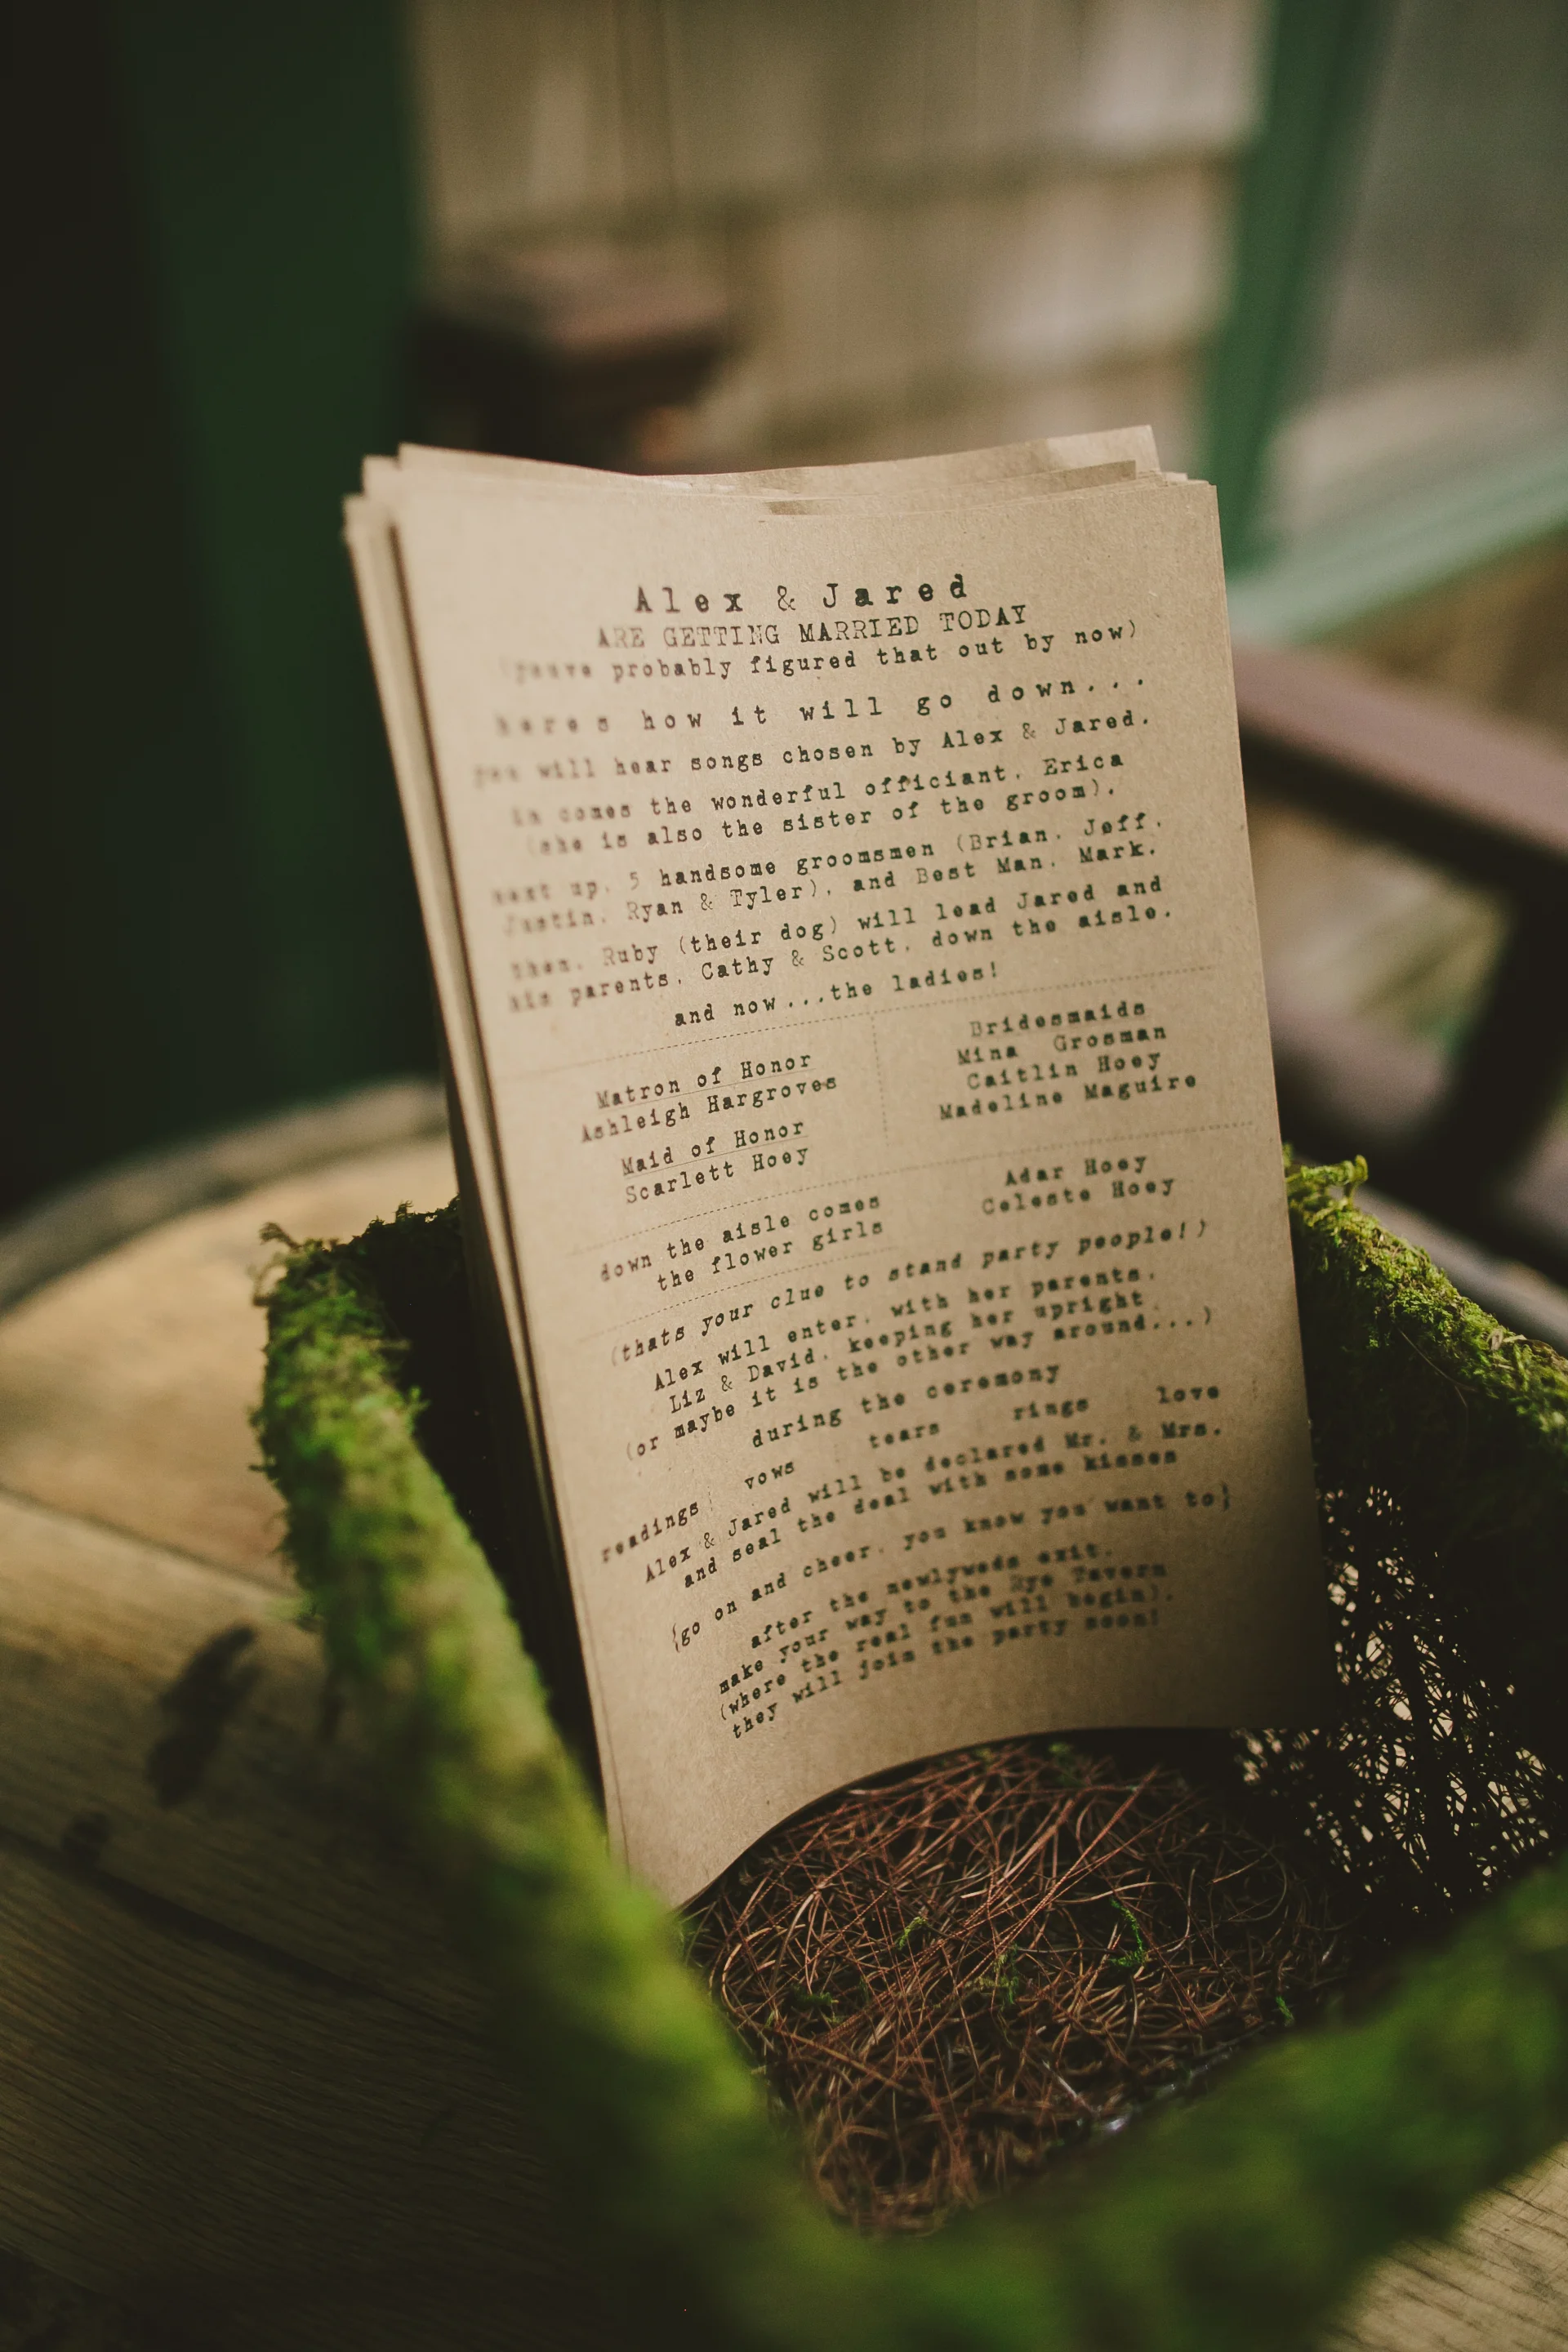 Alex & Jared
ARE GETTING MARRIED TODAY
probably figured that out by now)
heres how it will go down...
you will hear songs chosen by Alex & Jared.
in comes the wonderful officiant, Erica
(she is also the sister of the groom).
next up, 5 handsome groomsmen (Brian, Jeff,
Justin, Ryan & Tyler), and Best Man, Mark.
then, Ruby (their dog) will lead Jared and
his parents, Cathy & Scott, down the aisle.
and now...the ladies!
Matron of Honor
Ashleigh Hargroves
Maid of Honor
Scarlett Hoey
Bridesmaids
Mina Grosman
Caitlin Hoey
Madeline Maguire
down the aisle comes
the flower girls
Adar Hoey
Celeste Hoey
(thats your clue to stand party people!)
Alex will enter, with her parents,
Liz & David, keeping her upright
(or maybe it is the other way around...)
during the ceremony
readings vows tears rings love
Alex & Jared will be declared Mr. & Mrs.
and seal the deal with some kisses
{go on and cheer, you know you want to}
after the newlyweds exit,
make your way to the Rye Tavern
(where the real fun will begin).
they will join the party soon!